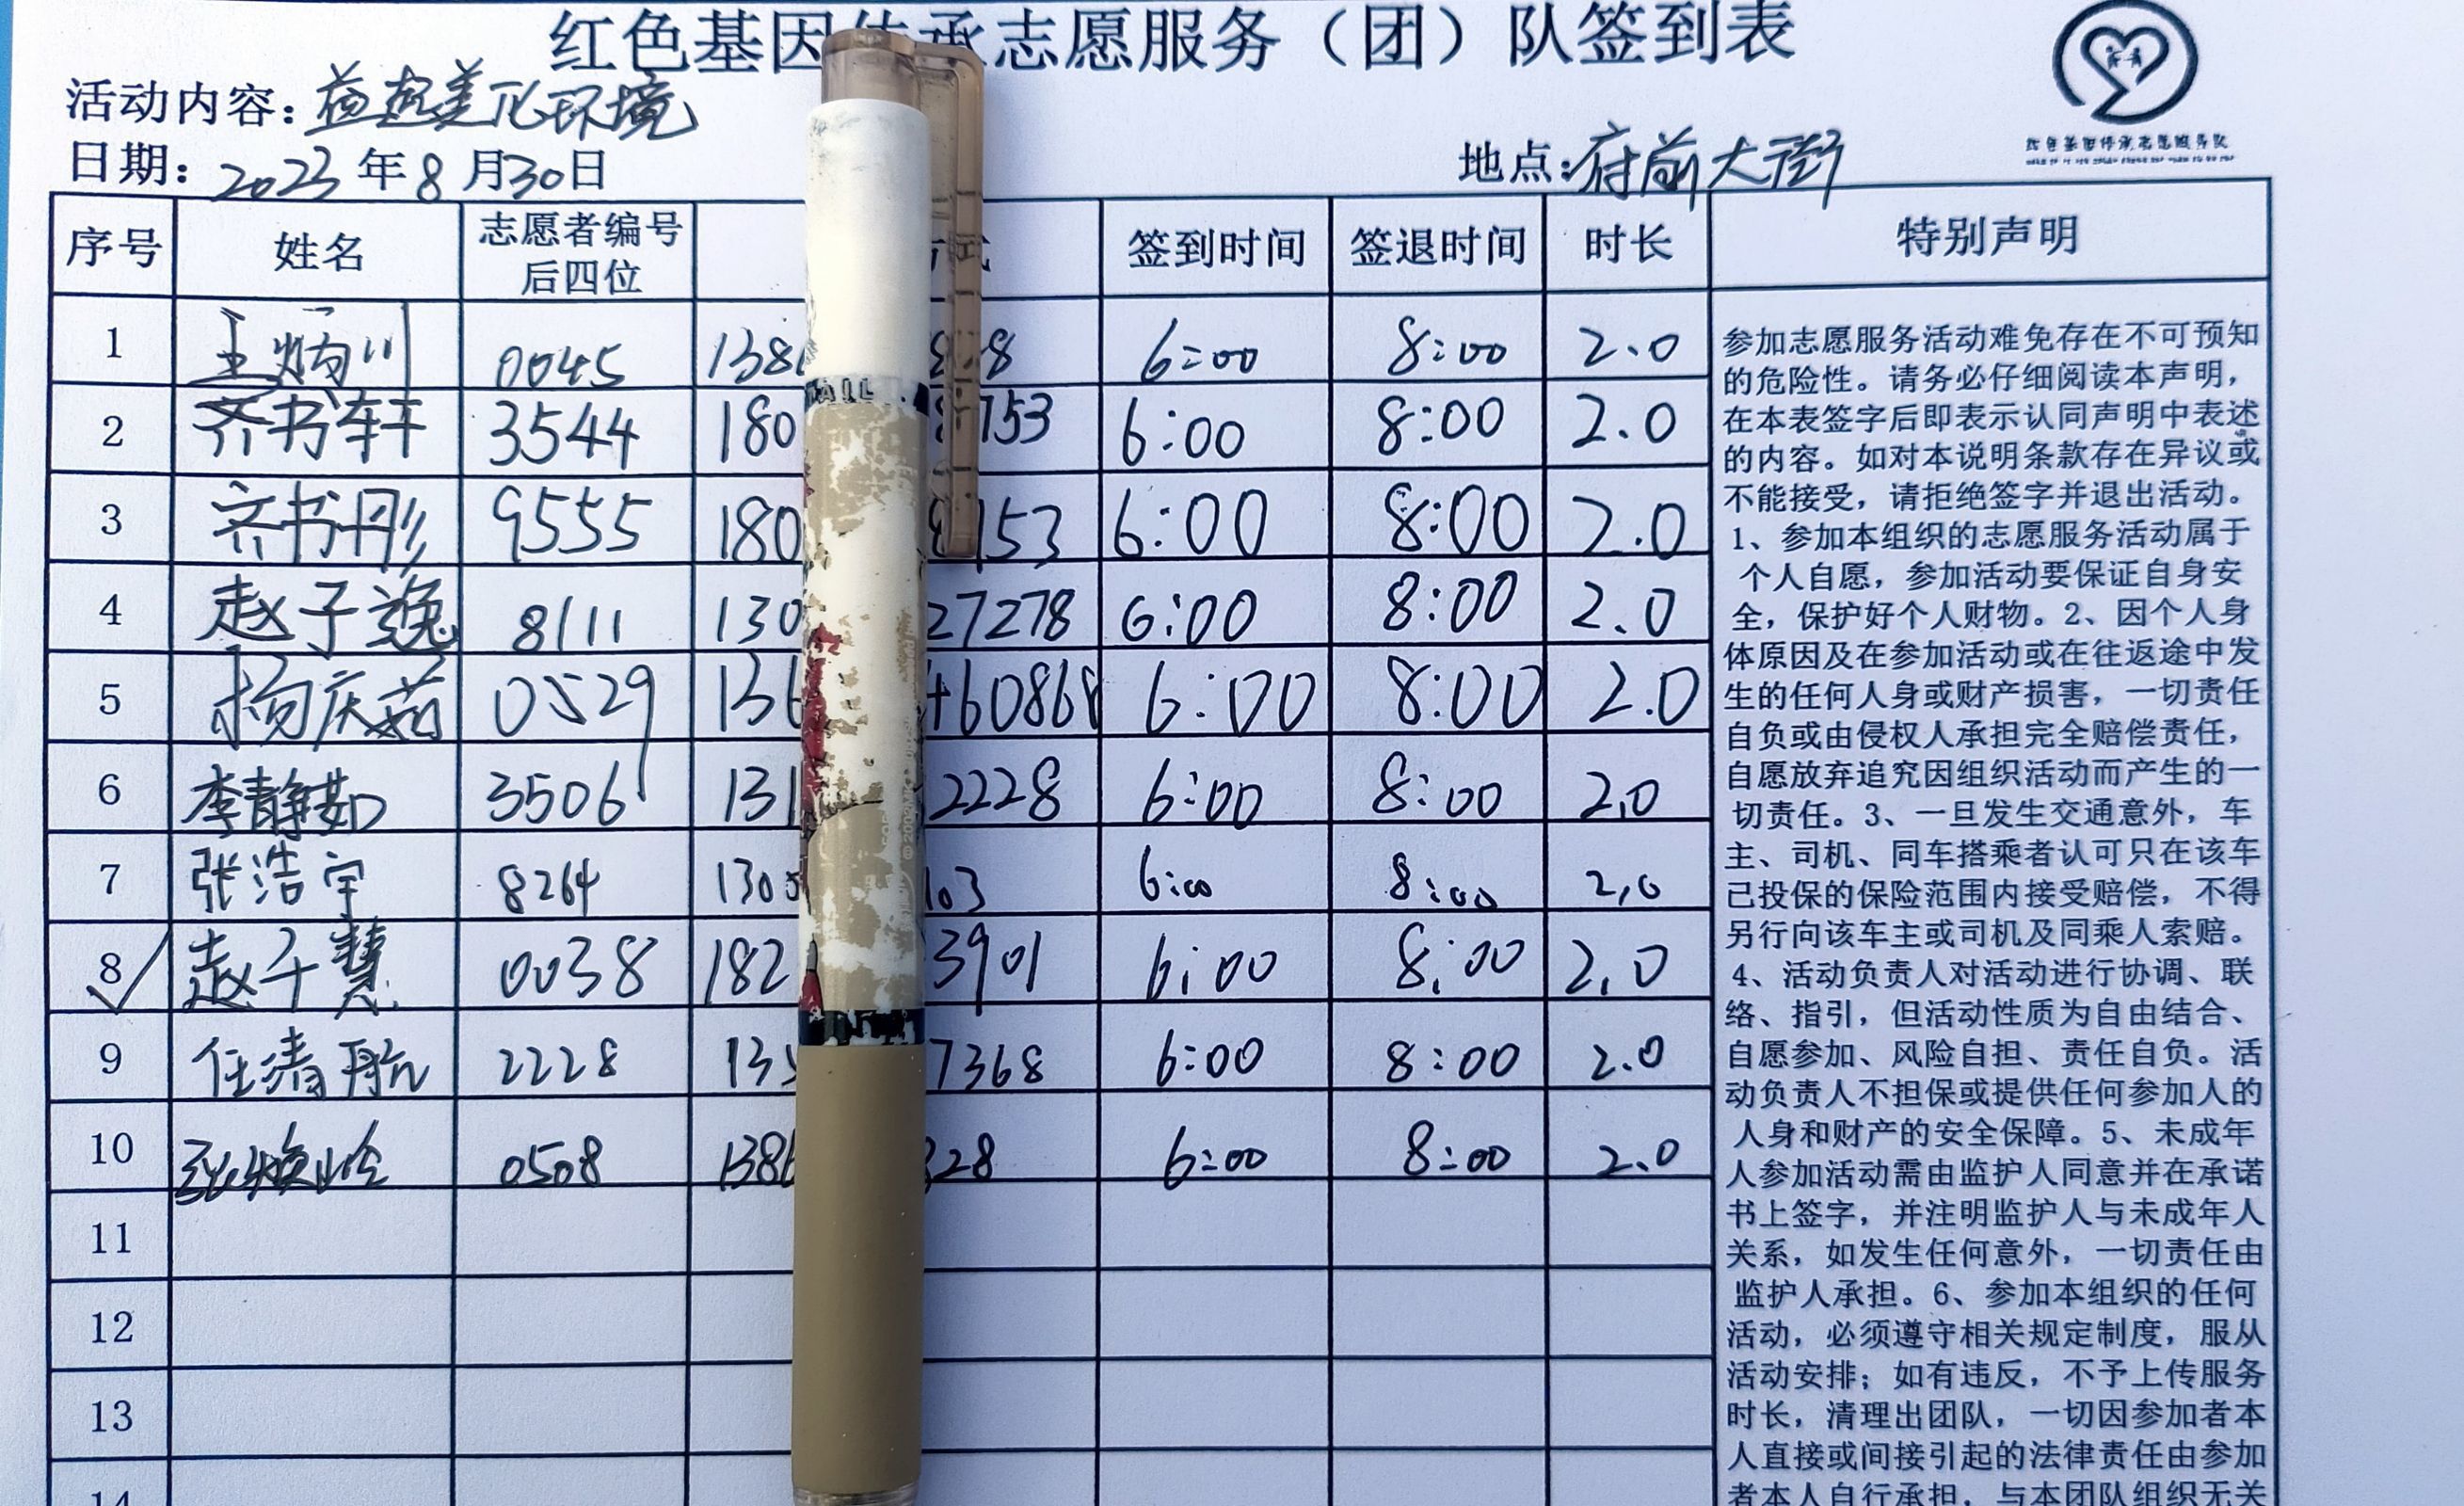 红色基因传承志愿服务（团）队签到表
活动内容：益起美化环境
日期：2023年8月30日
地点：府前大街
红色基因传承志愿服务队
序号 姓名 志愿者编号后四位 方式 签到时间 签退时间 时长 特别声明
1 王炳川 0045 138 8 6:00 8:00 2.0
2 齐书轩 3544 180 8753 6:00 8:00 2.0
3 齐书彤 9555 180 8153 6:00 8:00 2.0
4 赵子逸 8111 130 27278 6:00 8:00 2.0
5 杨庆茹 0529 136 460868 6:00 8:00 2.0
6 李静茹 3506 131 2228 6:00 8:00 2.0
7 张浩宇 8264 130 103 6:00 8:00 2.0
8 赵子慧 0038 182 3901 6:00 8:00 2.0
9 任清航 2228 135 7368 6:00 8:00 2.0
10 张焕岭 0508 138 328 6:00 8:00 2.0
11
12
13
14
参加志愿服务活动难免存在不可预知
的危险性。请务必仔细阅读本声明，
在本表签字后即表示认同声明中表述
的内容。如对本说明条款存在异议或
不能接受，请拒绝签字并退出活动。
1、参加本组织的志愿服务活动属于
个人自愿，参加活动要保证自身安
全，保护好个人财物。2、因个人身
体原因及在参加活动或在往返途中发
生的任何人身或财产损害，一切责任
自负或由侵权人承担完全赔偿责任，
自愿放弃追究因组织活动而产生的一
切责任。3、一旦发生交通意外，车
主、司机、同车搭乘者认可只在该车
已投保的保险范围内接受赔偿，不得
另行向该车主或司机及同乘人索赔。
4、活动负责人对活动进行协调、联
络、指引，但活动性质为自由结合、
自愿参加、风险自担、责任自负。活
动负责人不担保或提供任何参加人的
人身和财产的安全保障。5、未成年
人参加活动需由监护人同意并在承诺
书上签字，并注明监护人与未成年人
关系，如发生任何意外，一切责任由
监护人承担。6、参加本组织的任何
活动，必须遵守相关规定制度，服从
活动安排；如有违反，不予上传服务
时长，清理出团队，一切因参加者本
人直接或间接引起的法律责任由参加
者本人自行承担，与本团队组织无关